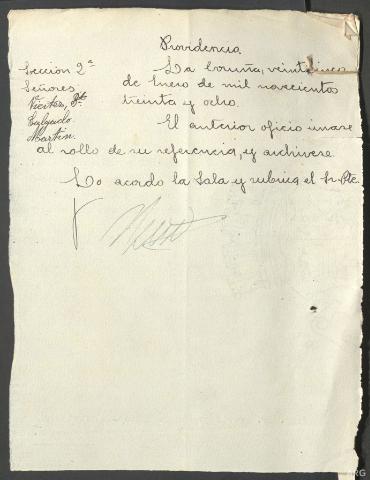 Providencia
Seccion 2ª
Señores
Martin.
La Coruña, veinticinco
de Enero de mil novecientos
treinta y ocho.
El anterior oficio unase
al rollo de su referencia, y archivese.
Lo acordo la Sala y rubrica el Sr. Pte.